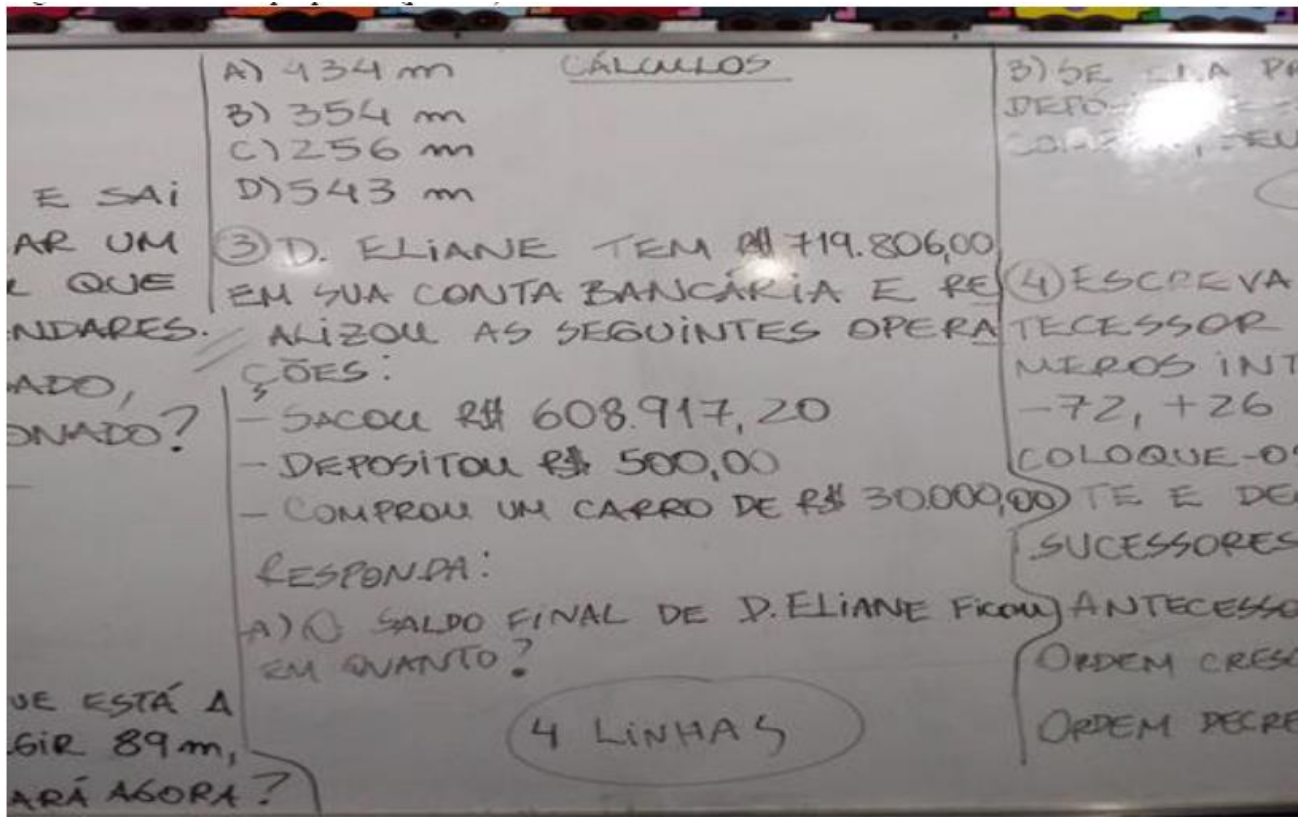 E SAI
AR UM
QUE
NDARES.
ADO,
ONADO?
UE ESTÁ A
GIR 89 m,
ARÁ AGORA?
A) 434 m
B) 354 m
C) 256 m
D) 543 m
CÁLCULOS
3 D. ELIANE TEM R$ 719.806,00
EM SUA CONTA BANCÁRIA E RE
ALIZOU AS SEGUINTES OPERA
ÇÕES:
- SACOU R$ 608.917,20
- DEPOSITOU R$ 500,00
- COMPROU UM CARRO DE R$ 30.000,00
RESPONDA:
A) O SALDO FINAL DE D. ELIANE FICOU
EM QUANTO?
4 LINHAS
B) SE
4 ESCREVA
TECESSOR
MEROS INT
-72, +26
COLOQUE-OS
TE E DE
SUCESSORES
ANTECESSO
ORDEM CRESC
ORDEM DECRE